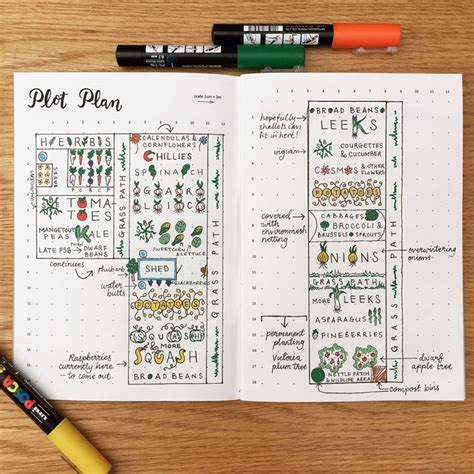 Plot Plan
scale 1cm = 1m
HERBS
CALENDULAS &
CORNFLOWERS
CHILLIES
SPINACH
GARLIC
TOMA
TOES
MANGETOUT
PEAS KALE
LATE PSB DWARF
BEANS
GRASS PATH
continues
SWEETCORN & LETTUCE
rhubarb
SHED
BLACKBERRIES
water
butts
POTATOES
SQUASH
& MORE
SQUASH
BROAD BEANS
GRASS PATH
Raspberries
currently here
to come out.
hopefully
shallots can
fit in here!
wigwam
BROAD BEANS
LEEKS
COURGETTES
& CUCUMBER
COSMOS & OTHER
FLOWERS
POTATOES
covered
with
environmesh
netting
CABBAGES
BROCCOLI &
BRUSSELS SPROUTS
GRASS PATH
overwintering
onions
ONIONS
GRASS PATH
MORE LEEKS
ASPARAGUS
PINEBERRIES
GRASS PATH
permanent
planting
Victoria
plum tree
dwarf
apple tree
NETTLE PATCH
& WILDLIFE AREA
compost bins
POSCA